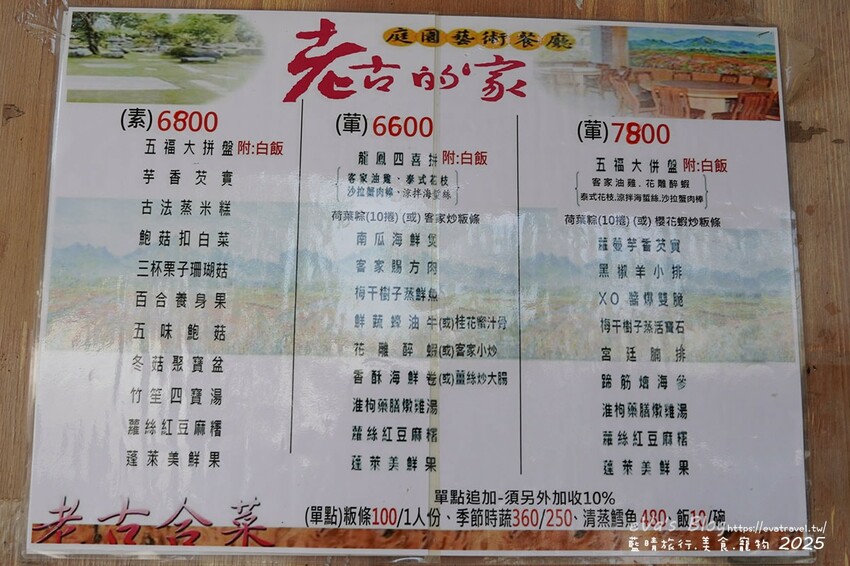 庭園藝術餐廳
老古的家
(素)6800
五福大拼盤 附:白飯
芋香芡實
古法蒸米糕
鮑菇扣白菜
三杯栗子珊瑚菇
百合養身果
五味鮑菇
冬菇聚寶盆
竹笙四寶湯
蘿絲紅豆麻糬
蓬萊美鮮果
(葷)6600
龍鳳四喜拼 附:白飯
客家油雞.泰式花枝
沙拉蟹肉棒.涼拌海蜇絲
荷葉粽(10捲)(或)客家炒粄條
南瓜海鮮煲
客家賜方肉
梅干樹子蒸鮮魚
鮮蔬蠔油牛(或)桂花蜜汁骨
花雕醉蝦(或)客家小炒
香酥海鮮卷(或)薑絲炒大腸
淮枸藥膳燉雞湯
蘿絲紅豆麻糬
蓬萊美鮮果
(葷)7800
五福大併盤 附:白飯
客家油雞.花雕醉蝦
泰式花枝.涼拌海蜇絲.沙拉蟹肉棒
荷葉粽(10捲)(或)櫻花蝦炒粄條
蘿蔓芋香芡實
黑椒羊小排
XO醬爆雙脆
梅干樹子蒸活寶石
宮廷腩排
蹄筋燴海參
淮枸藥膳燉雞湯
蘿絲紅豆麻糬
蓬萊美鮮果
單點追加-須另外加收10%
(單點)粄條100/1人份、季節時蔬360/250、清蒸鱈魚480、飯10/碗
老古合菜
Eva's Blog https://evatravel.tw/
藍晴旅行.美食.寵物 2025